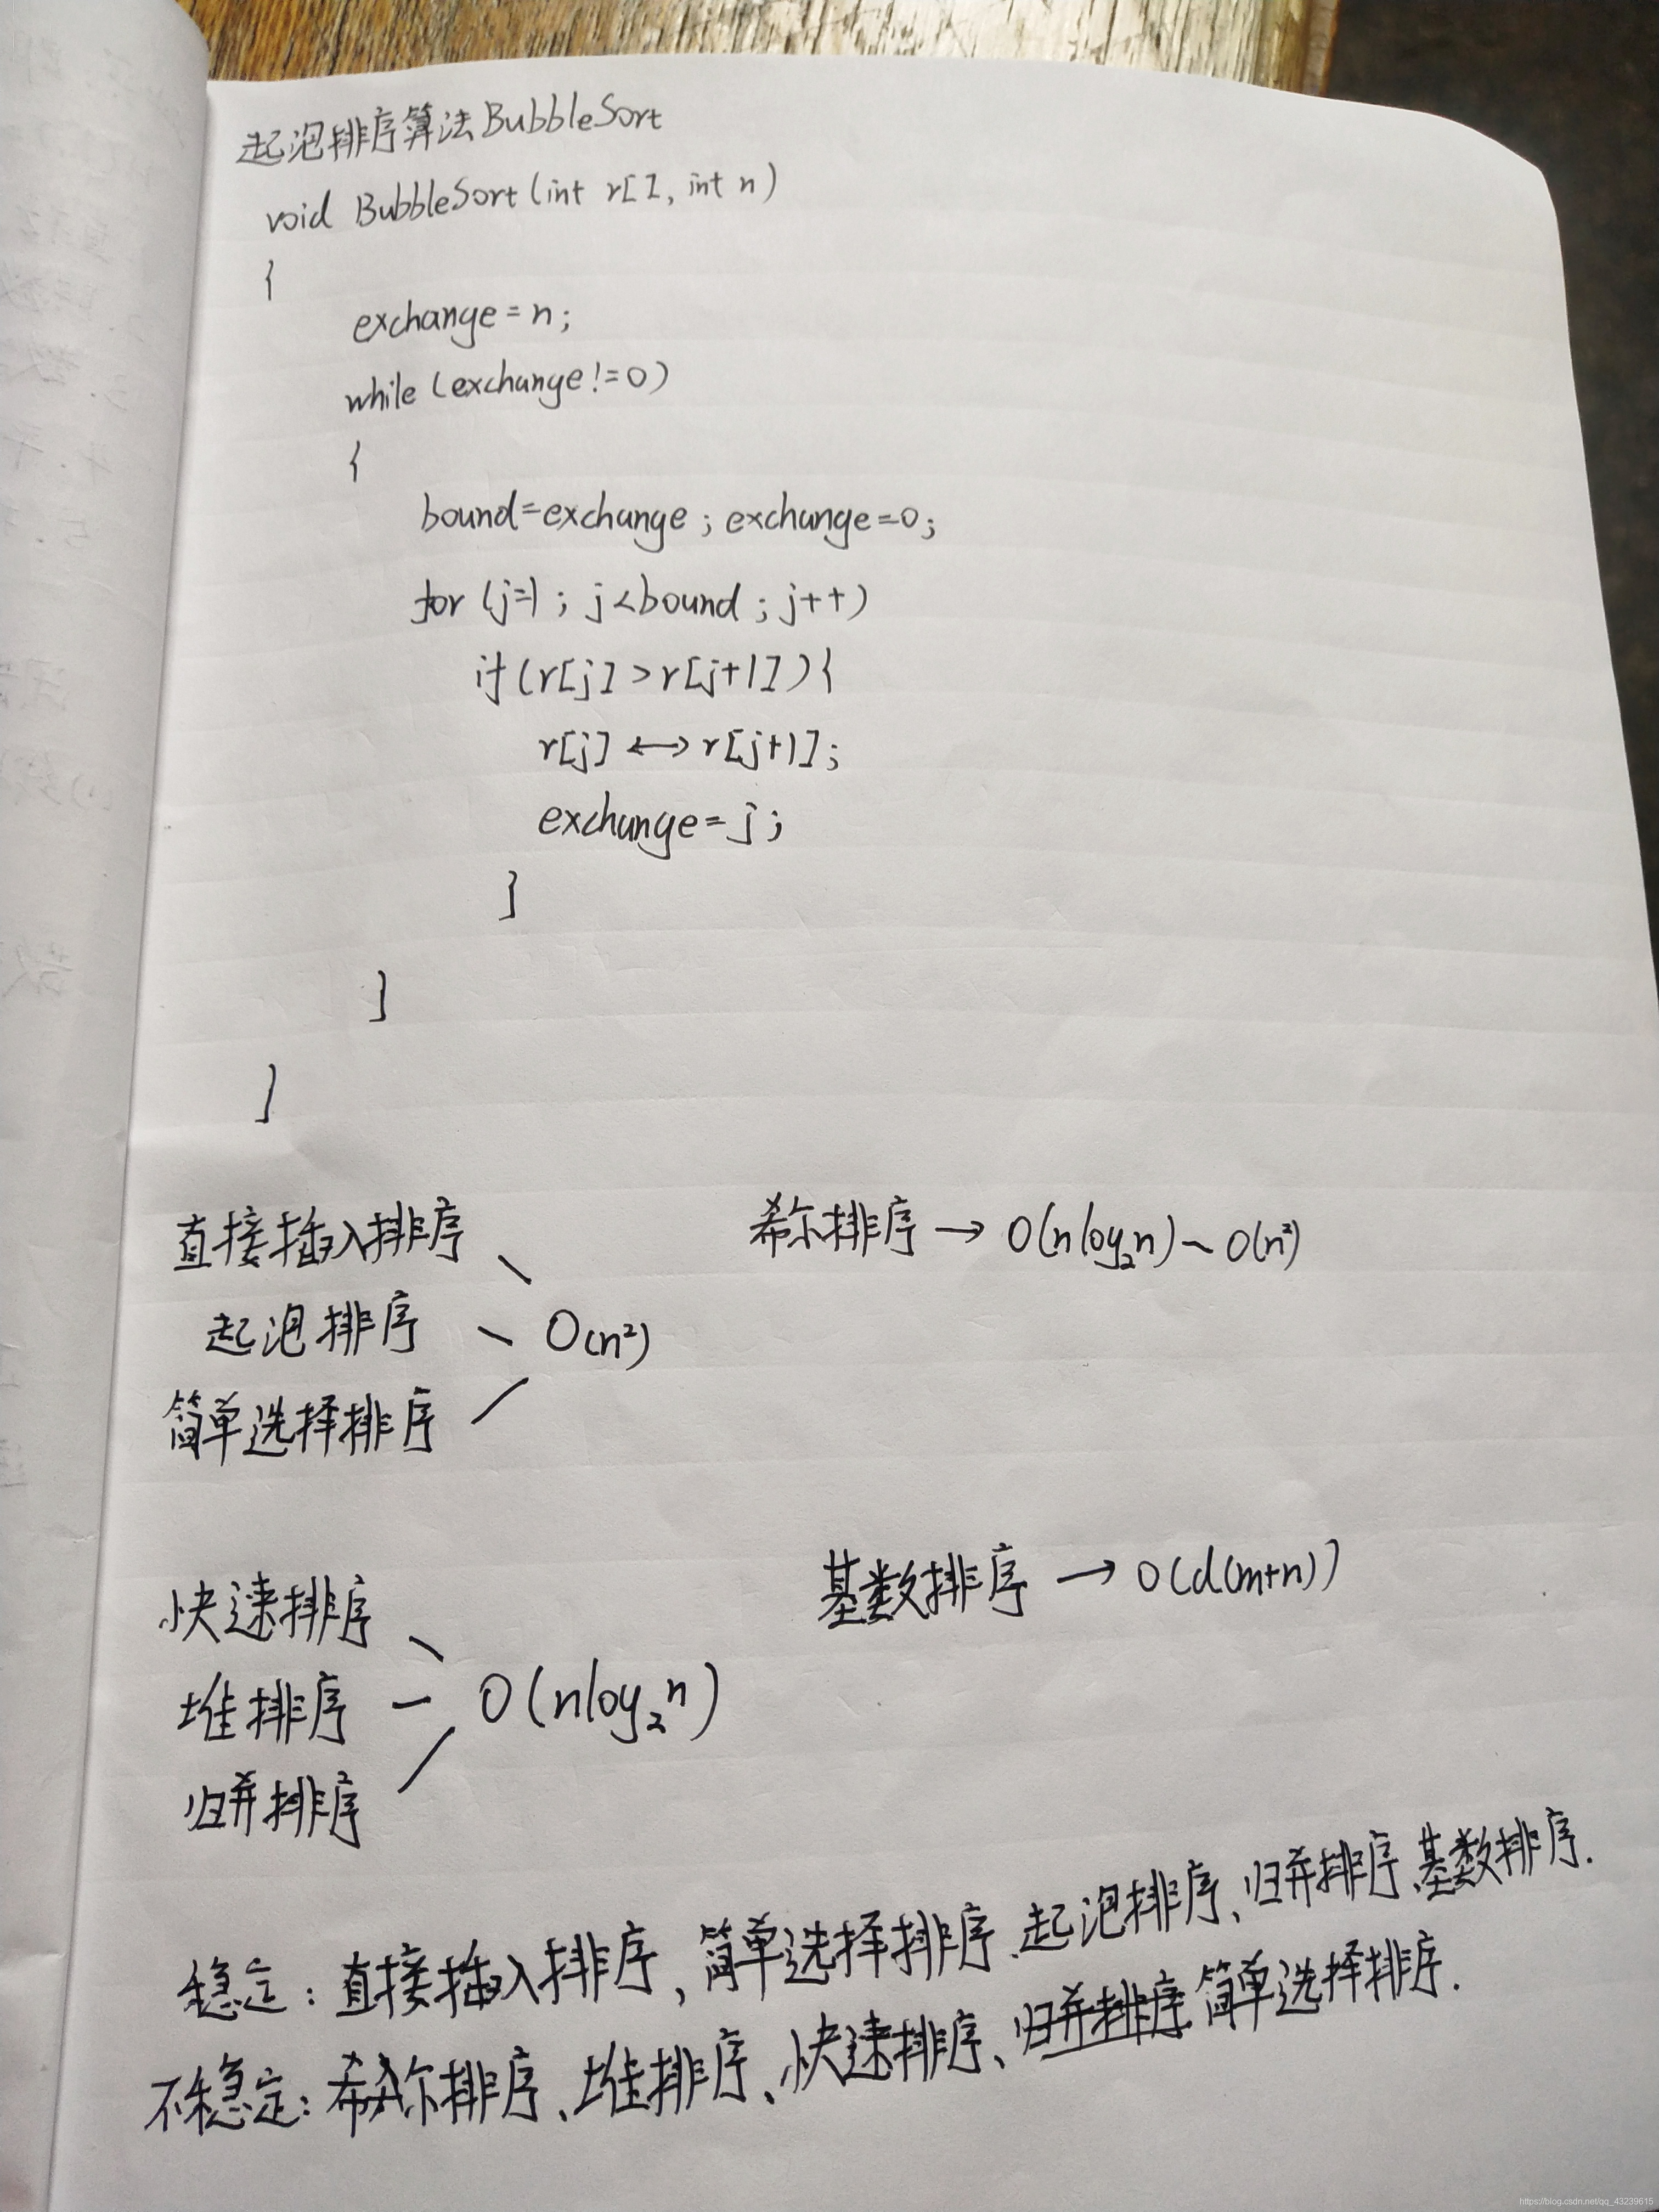 起泡排序算法BubbleSort
void BubbleSort(int r[],int n)
{
exchange=n;
while(exchange!=0)
{
bound=exchange;exchange=0;
for(j=1;j<bound;j++)
if(r[j]>r[j+1]){
r[j]↔r[j+1];
exchange=j;
}
}
}
直接插入排序
起泡排序 O(n²)
简单选择排序
希尔排序→O(nlog₂n)~O(n²)
快速排序
堆排序 O(nlog₂n)
归并排序
基数排序→O(d(m+n))
稳定:直接插入排序,简单选择排序、起泡排序、归并排序、基数排序.
不稳定:希尔排序、堆排序、快速排序、归并排序、简单选择排序.
https://blog.csdn.net/qq_43239615